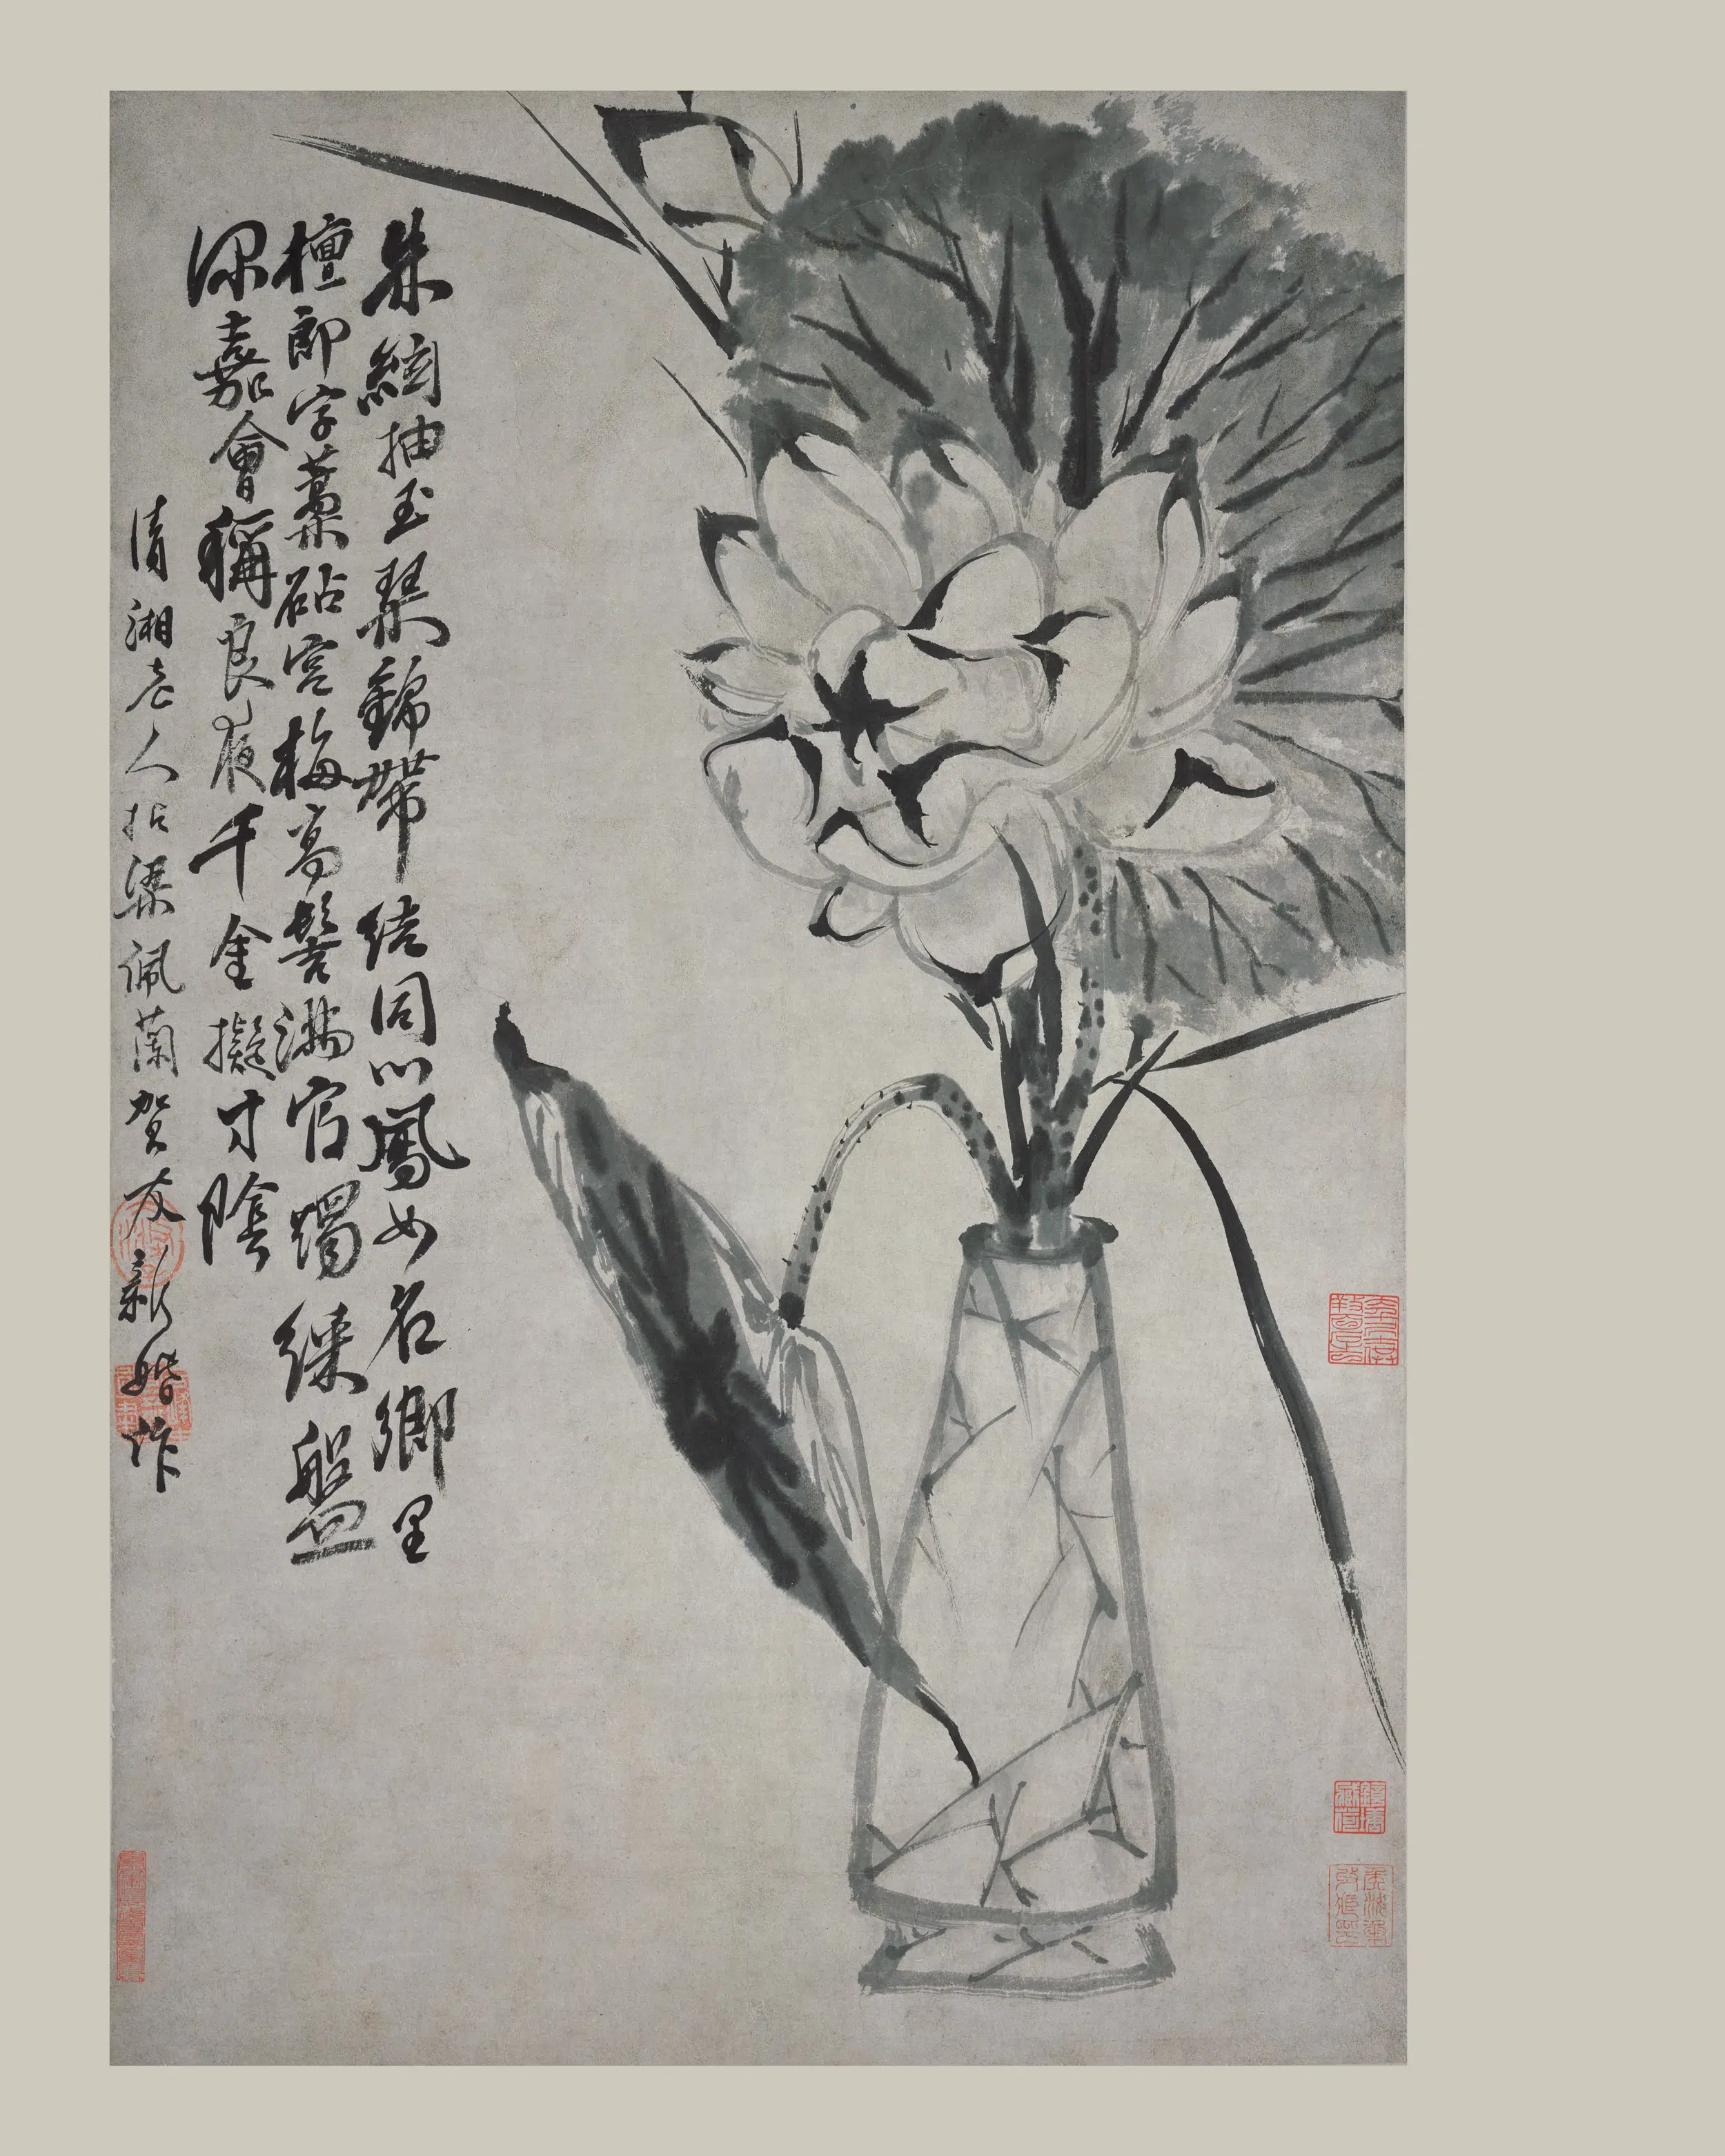 朱絃抽玉琴錦帶結同心鳳女名鄉里
檀郎字藁砧宮梅高髻滿官燭綵盤
深嘉會稱良夜千金擬寸陰
清湘老人拈梁佩蘭賀友新婚作